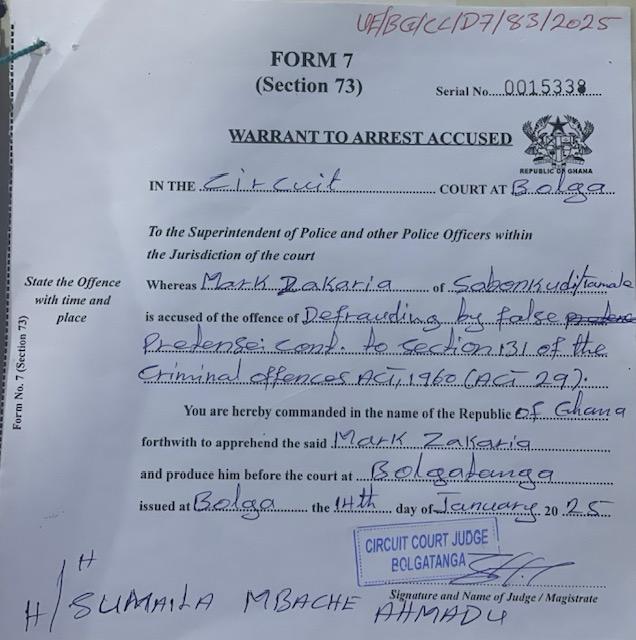 UE/BG/CC/D7/83/2025
FORM 7
(Section 73)
Serial No. 0015338
WARRANT TO ARREST ACCUSED
REPUBLIC OF GHANA
IN THE Circuit COURT AT Bolga
To the Superintendent of Police and other Police Officers within
the Jurisdiction of the court
State the Offence
with time and
place
Whereas Mark Zakaria of Sabonkudi/Tamale
is accused of the offence of Defrauding by false
Pretense: cont. to section 131 of the
Criminal offences ACT, 1960 (ACT 29).
Form No. 7 (Section 73)
You are hereby commanded in the name of the Republic of Ghana
forthwith to apprehend the said Mark Zakaria
and produce him before the court at Bolgatanga
issued at Bolga the 14th day of January 20 25
CIRCUIT COURT JUDGE
BOLGATANGA
Signature and Name of Judge / Magistrate
H/H SUMAILA MBACHE AHMADU